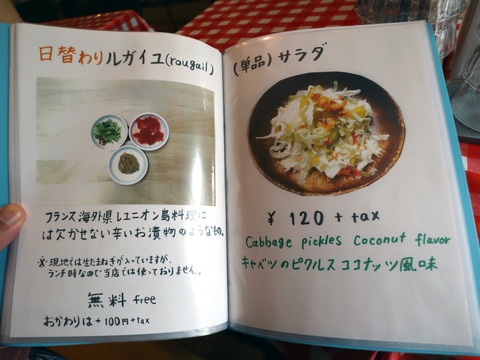 日替わりルガイユ(rougail)
フランス海外県レユニオン島料理に
は欠かせない辛いお漬物のようなもの。
※現地では生たまねぎが入っていますが、
ランチ時なので当店では使っておりません。
無料 free
おかわりは+100円+tax
(単品)サラダ
¥ 120 + tax
Cabbage pickles Coconut flavor
キャベツのピクルスココナッツ風味